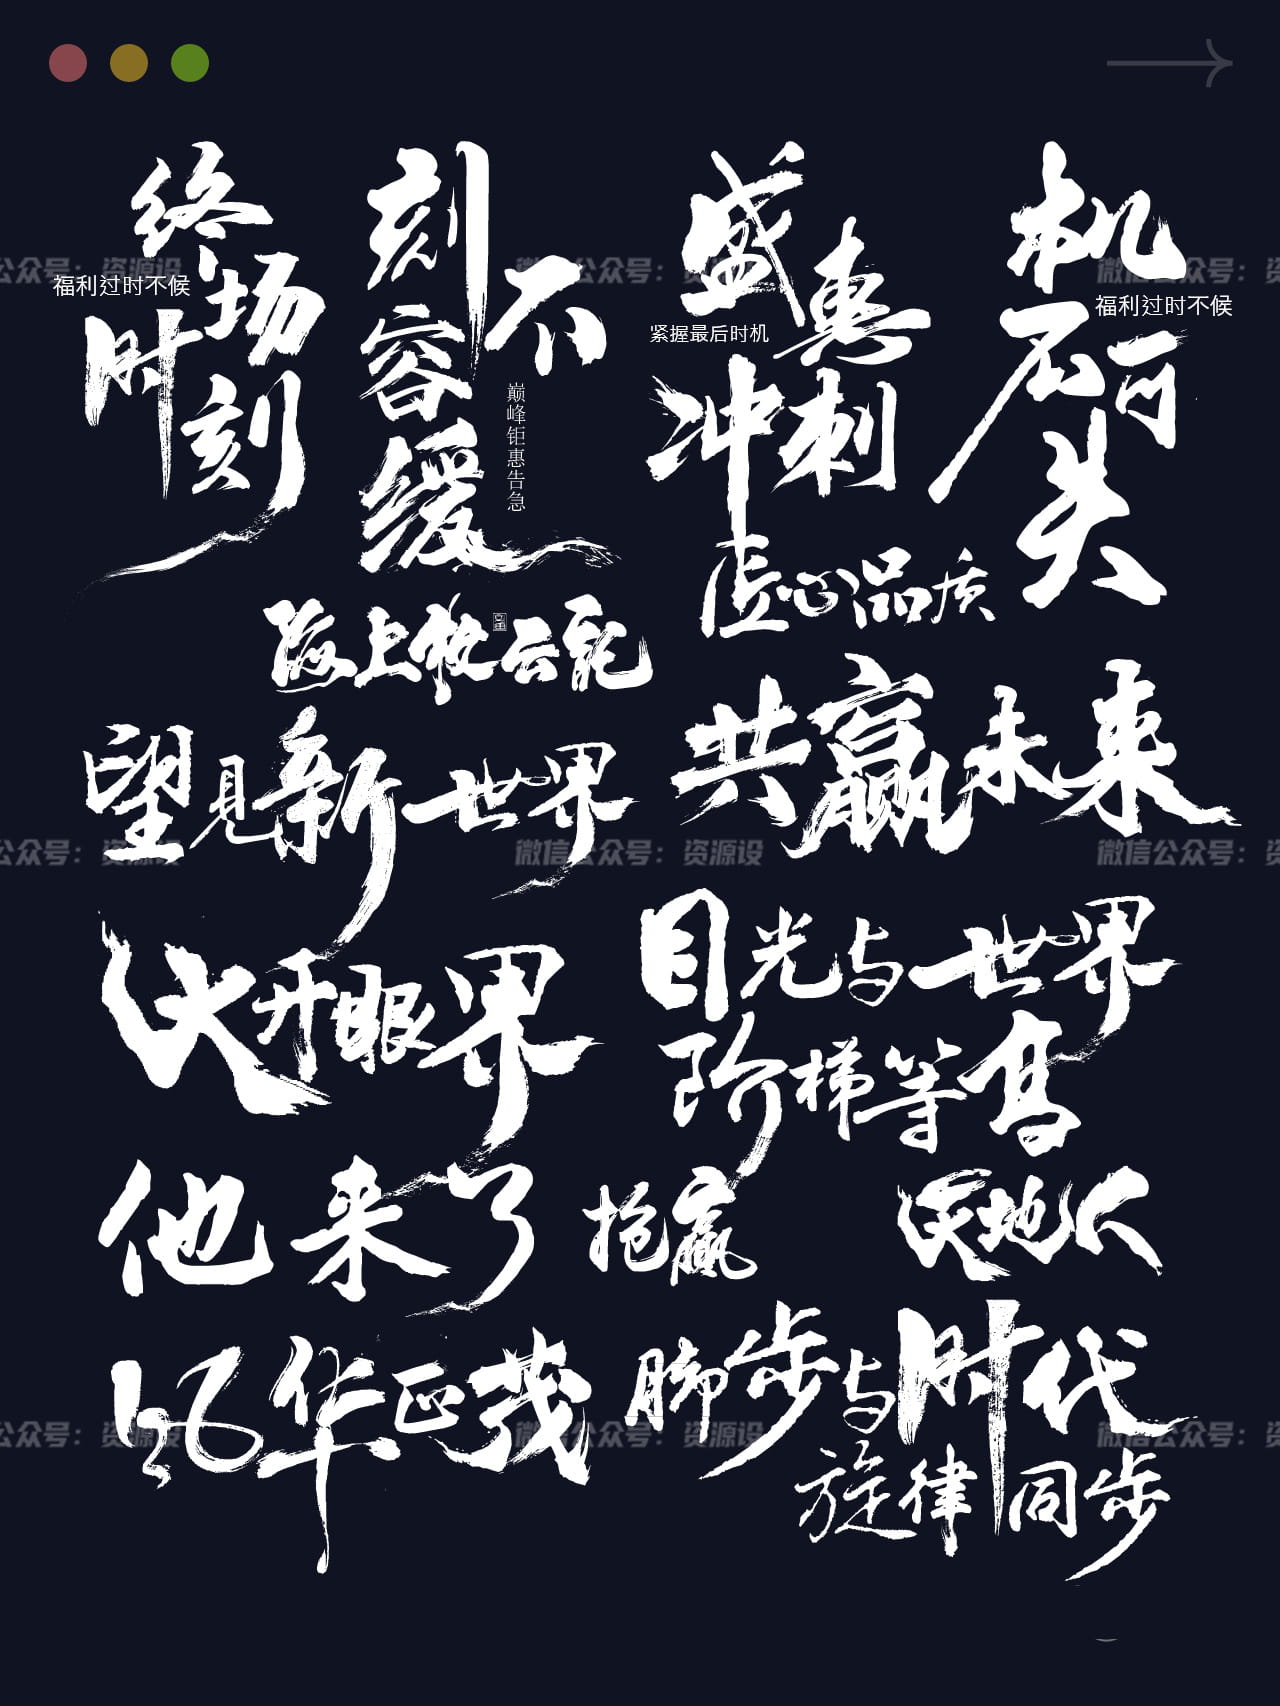 终场
时刻
福利过时不候
刻不
容缓
巅峰钜惠告急
盛惠
紧握最后时机
冲刺
机不可失
福利过时不候
虚心品质
上牧云记
望见新世界
共赢未来
大开眼界
目光与世界
阶梯等高
他来了
抢赢
天地人
风华正茂
脚步与时代
旋律同步
微信公众号：资源设